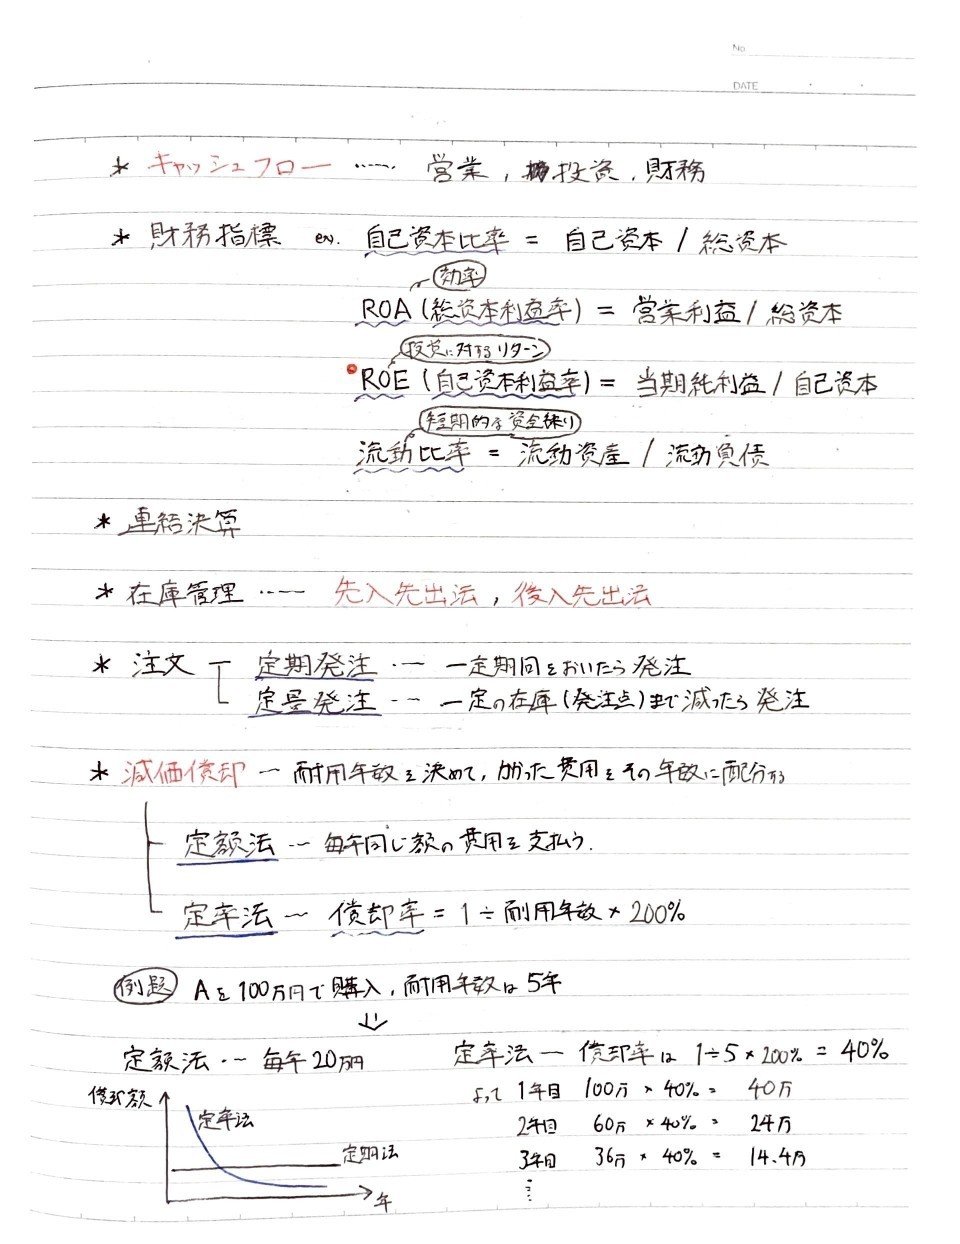 No.
DATE
* キャッシュフロー …… 営業, 投資, 財務
* 財務指標 ex. 自己資本比率 = 自己資本 / 総資本
効率
ROA (総資本利益率) = 営業利益 / 総資本
投資に対するリターン
ROE (自己資本利益率) = 当期純利益 / 自己資本
短期的な資金繰り
流動比率 = 流動資産 / 流動負債
* 連結決算
* 在庫管理 …… 先入先出法, 後入先出法
* 注文 定期発注 … 一定期間をおいたら発注
定量発注 … 一定の在庫(発注点)まで減ったら発注
* 減価償却 … 耐用年数を決めて, かかった費用をその年数に配分する
定額法 … 毎年同じ額の費用を支払う.
定率法 … 償却率 = 1 ÷ 耐用年数 × 200%
例題 Aを100万円で購入, 耐用年数は5年
⇓
定額法 … 毎年20万円
定率法 … 償却率は 1÷5 × 200% = 40%
よって 1年目 100万 × 40% = 40万
2年目 60万 × 40% = 24万
3年目 36万 × 40% = 14.4万
⋮
償却額
定率法
定期法
年